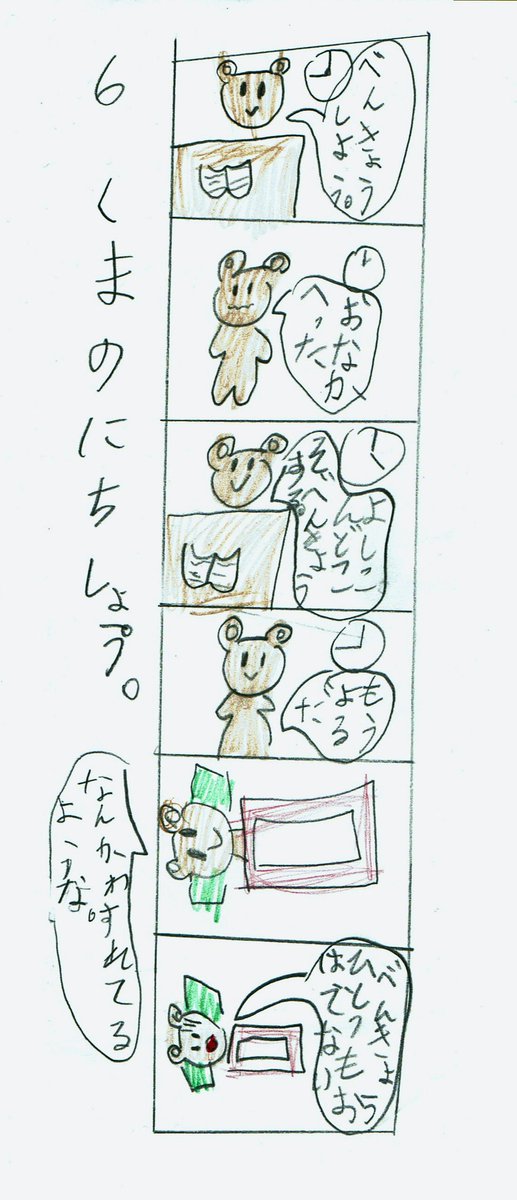 6 くまのにちしょう。
べんきょう
しよう。
おなか
へった
よしこ
んどこ
そべんきょう
はる。
もう
よる
だ
なんかわすれてる
ような。
べんきょう
ひとつもお
はでない